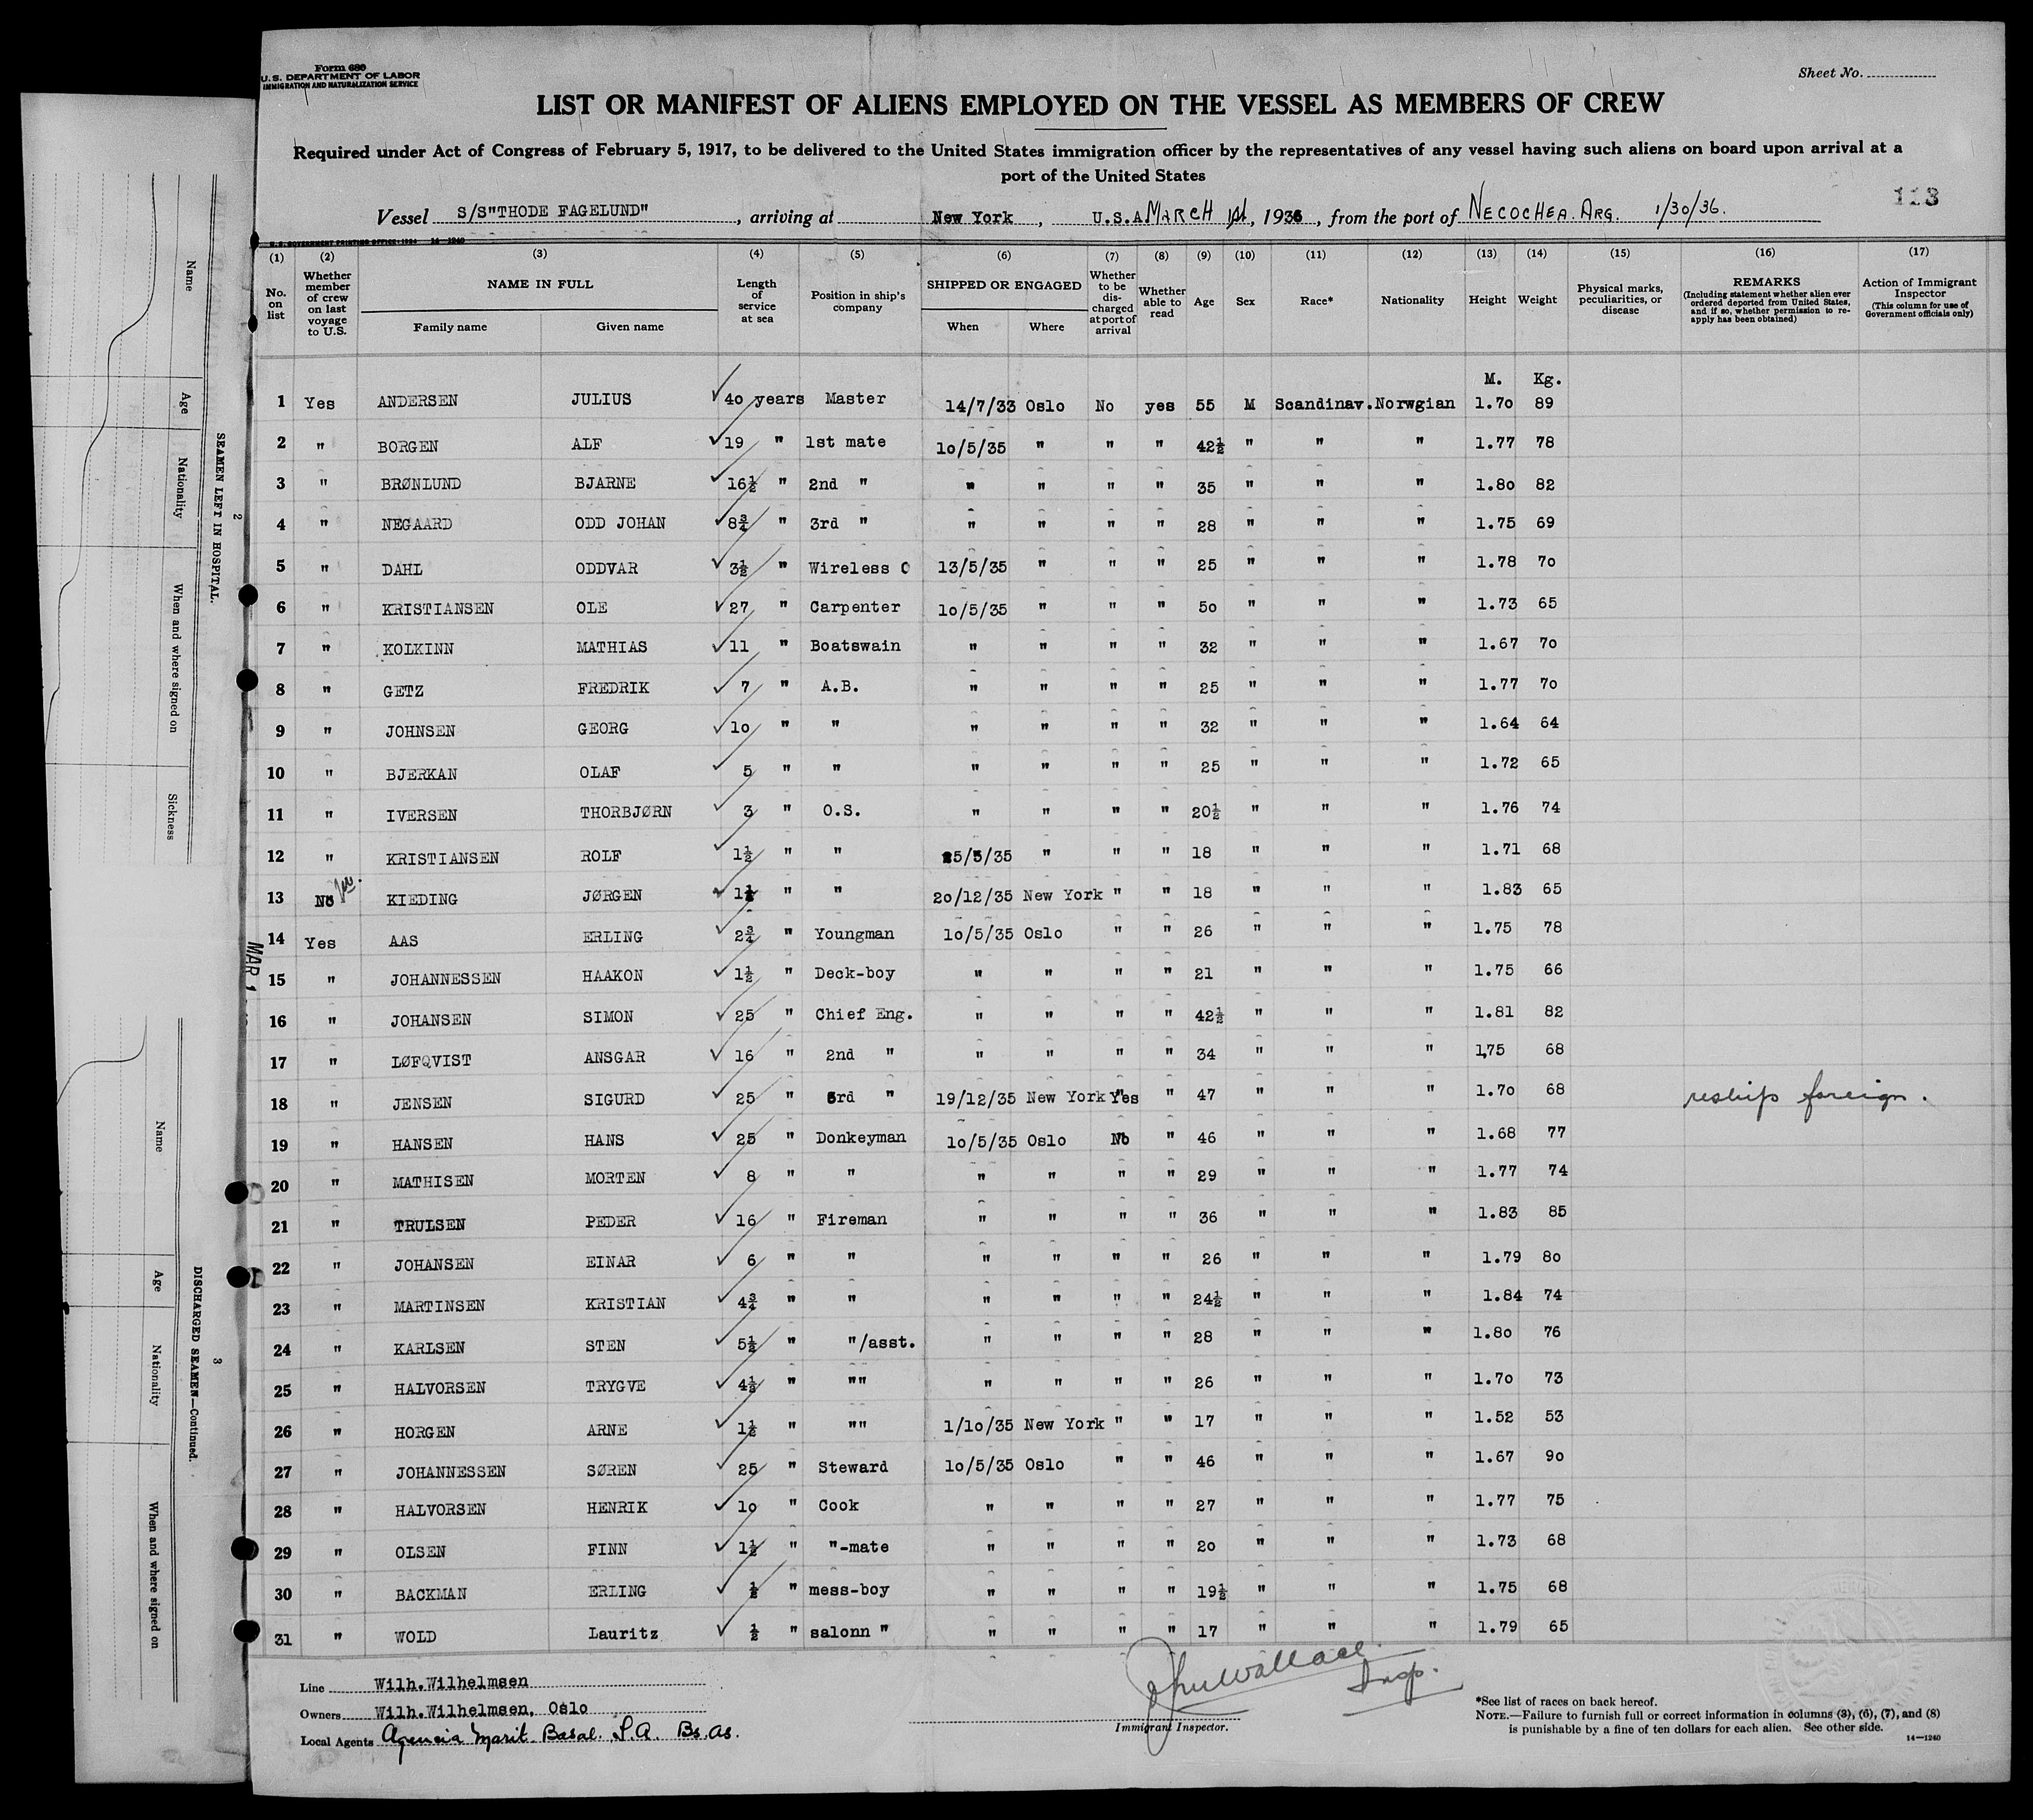 Form 680
U. S. DEPARTMENT OF LABOR
IMMIGRATION AND NATURALIZATION SERVICE
Sheet No.
LIST OR MANIFEST OF ALIENS EMPLOYED ON THE VESSEL AS MEMBERS OF CREW
Required under Act of Congress of February 5, 1917, to be delivered to the United States immigration officer by the representatives of any vessel having such aliens on board upon arrival at a
port of the United States
113
Vessel S/S"THODE FAGELUND", arriving at New York, U.S.A MARCH 1st, 1936, from the port of NECOCHEA. ARG. 1/30/36.
U. S. GOVERNMENT PRINTING OFFICE: 1934 14—1240
(1) (2) (3) (4) (5) (6) (7) (8) (9) (10) (11) (12) (13) (14) (15) (16) (17)
No. on list | Whether member of crew on last voyage to U.S. | NAME IN FULL Family name Given name | Length of service at sea | Position in ship's company | SHIPPED OR ENGAGED When Where | Whether to be discharged at port of arrival | Whether able to read | Age | Sex | Race* | Nationality | Height | Weight | Physical marks, peculiarities, or disease | REMARKS (Including statement whether alien ever ordered deported from United States, and if so, whether permission to reapply has been obtained) | Action of Immigrant Inspector (This column for use of Government officials only)
M. Kg.
1 Yes ANDERSEN JULIUS 40 years Master 14/7/33 Oslo No yes 55 M Scandinav. Norwgian 1.70 89
2 " BORGEN ALF 19 " 1st mate 10/5/35 " " " 42½ " " " 1.77 78
3 " BRØNLUND BJARNE 16½ " 2nd " " " " " 35 " " " 1.80 82
4 " NEGAARD ODD JOHAN 8¾ " 3rd " " " " " 28 " " " 1.75 69
5 " DAHL ODDVAR 3½ " Wireless O 13/5/35 " " " 25 " " " 1.78 70
6 " KRISTIANSEN OLE 27 " Carpenter 10/5/35 " " " 50 " " " 1.73 65
7 " KOLKINN MATHIAS 11 " Boatswain " " " " 32 " " " 1.67 70
8 " GETZ FREDRIK 7 " A.B. " " " " 25 " " " 1.77 70
9 " JOHNSEN GEORG 10 " " " " " " 32 " " " 1.64 64
10 " BJERKAN OLAF 5 " " " " " " 25 " " " 1.72 65
11 " IVERSEN THORBJØRN 3 " O.S. " " " " 20½ " " " 1.76 74
12 " KRISTIANSEN ROLF 1½ " " 25/5/35 " " " 18 " " " 1.71 68
13 No KIEDING JØRGEN 1½ " " 20/12/35 New York " " 18 " " " 1.83 65
14 Yes AAS ERLING 2¾ " Youngman 10/5/35 Oslo " " 26 " " " 1.75 78
15 " JOHANNESSEN HAAKON 1½ " Deck-boy " " " " 21 " " " 1.75 66
16 " JOHANSEN SIMON 25 " Chief Eng. " " " " 42½ " " " 1.81 82
17 " LØFQVIST ANSGAR 16 " 2nd " " " " " 34 " " " 1,75 68
18 " JENSEN SIGURD 25 " 3rd " 19/12/35 New York Yes " 47 " " " 1.70 68 reship foreign.
19 " HANSEN HANS 25 " Donkeyman 10/5/35 Oslo No " 46 " " " 1.68 77
20 " MATHISEN MORTEN 8 " " " " " " 29 " " " 1.77 74
21 " TRULSEN PEDER 16 " Fireman " " " " 36 " " " 1.83 85
22 " JOHANSEN EINAR 6 " " " " " " 26 " " " 1.79 80
23 " MARTINSEN KRISTIAN 4¾ " " " " " " 24½ " " " 1.84 74
24 " KARLSEN STEN 5½ " "/asst. " " " " 28 " " " 1.80 76
25 " HALVORSEN TRYGVE 4½ " "" " " " " 26 " " " 1.70 73
26 " HORGEN ARNE 1½ " "" 1/10/35 New York " " 17 " " " 1.52 53
27 " JOHANNESSEN SØREN 25 " Steward 10/5/35 Oslo " " 46 " " " 1.67 90
28 " HALVORSEN HENRIK 10 " Cook " " " " 27 " " " 1.77 75
29 " OLSEN FINN 1½ " "-mate " " " " 20 " " " 1.73 68
30 " BACKMAN ERLING ½ " mess-boy " " " " 19½ " " " 1.75 68
31 " WOLD Lauritz ½ " salonn " " " " " 17 " " " 1.79 65
Line Wilh.Wilhelmsen
Owners Wilh.Wilhelmsen, Oslo
Local Agents Agencia Marit. Basal. S.A. Bs.As.
Jhn Wallace Insp.
Immigrant Inspector.
*See list of races on back hereof.
NOTE.—Failure to furnish full or correct information in columns (3), (6), (7), and (8)
is punishable by a fine of ten dollars for each alien. See other side.
14—1240
MAR 1
2
SEAMEN LEFT IN HOSPITAL.
Name
Age
Nationality
When and where signed on
Sickness
3
DISCHARGED SEAMEN—Continued.
Name
Age
Nationality
When and where signed on